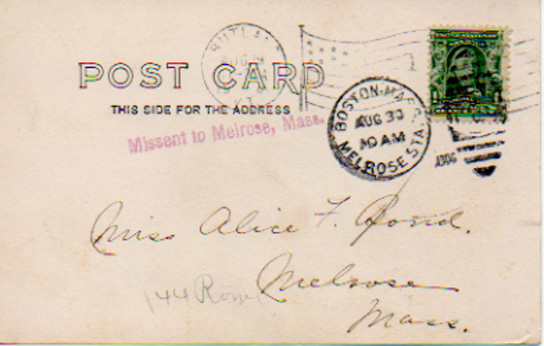 POST CARD
THIS SIDE FOR THE ADDRESS
Missent to Melrose, Mass.
BOSTON, MASS.
AUG 30
10 AM
MELROSE STA.
1906
Miss Alice F. Bond.
Melrose
Mass.
144